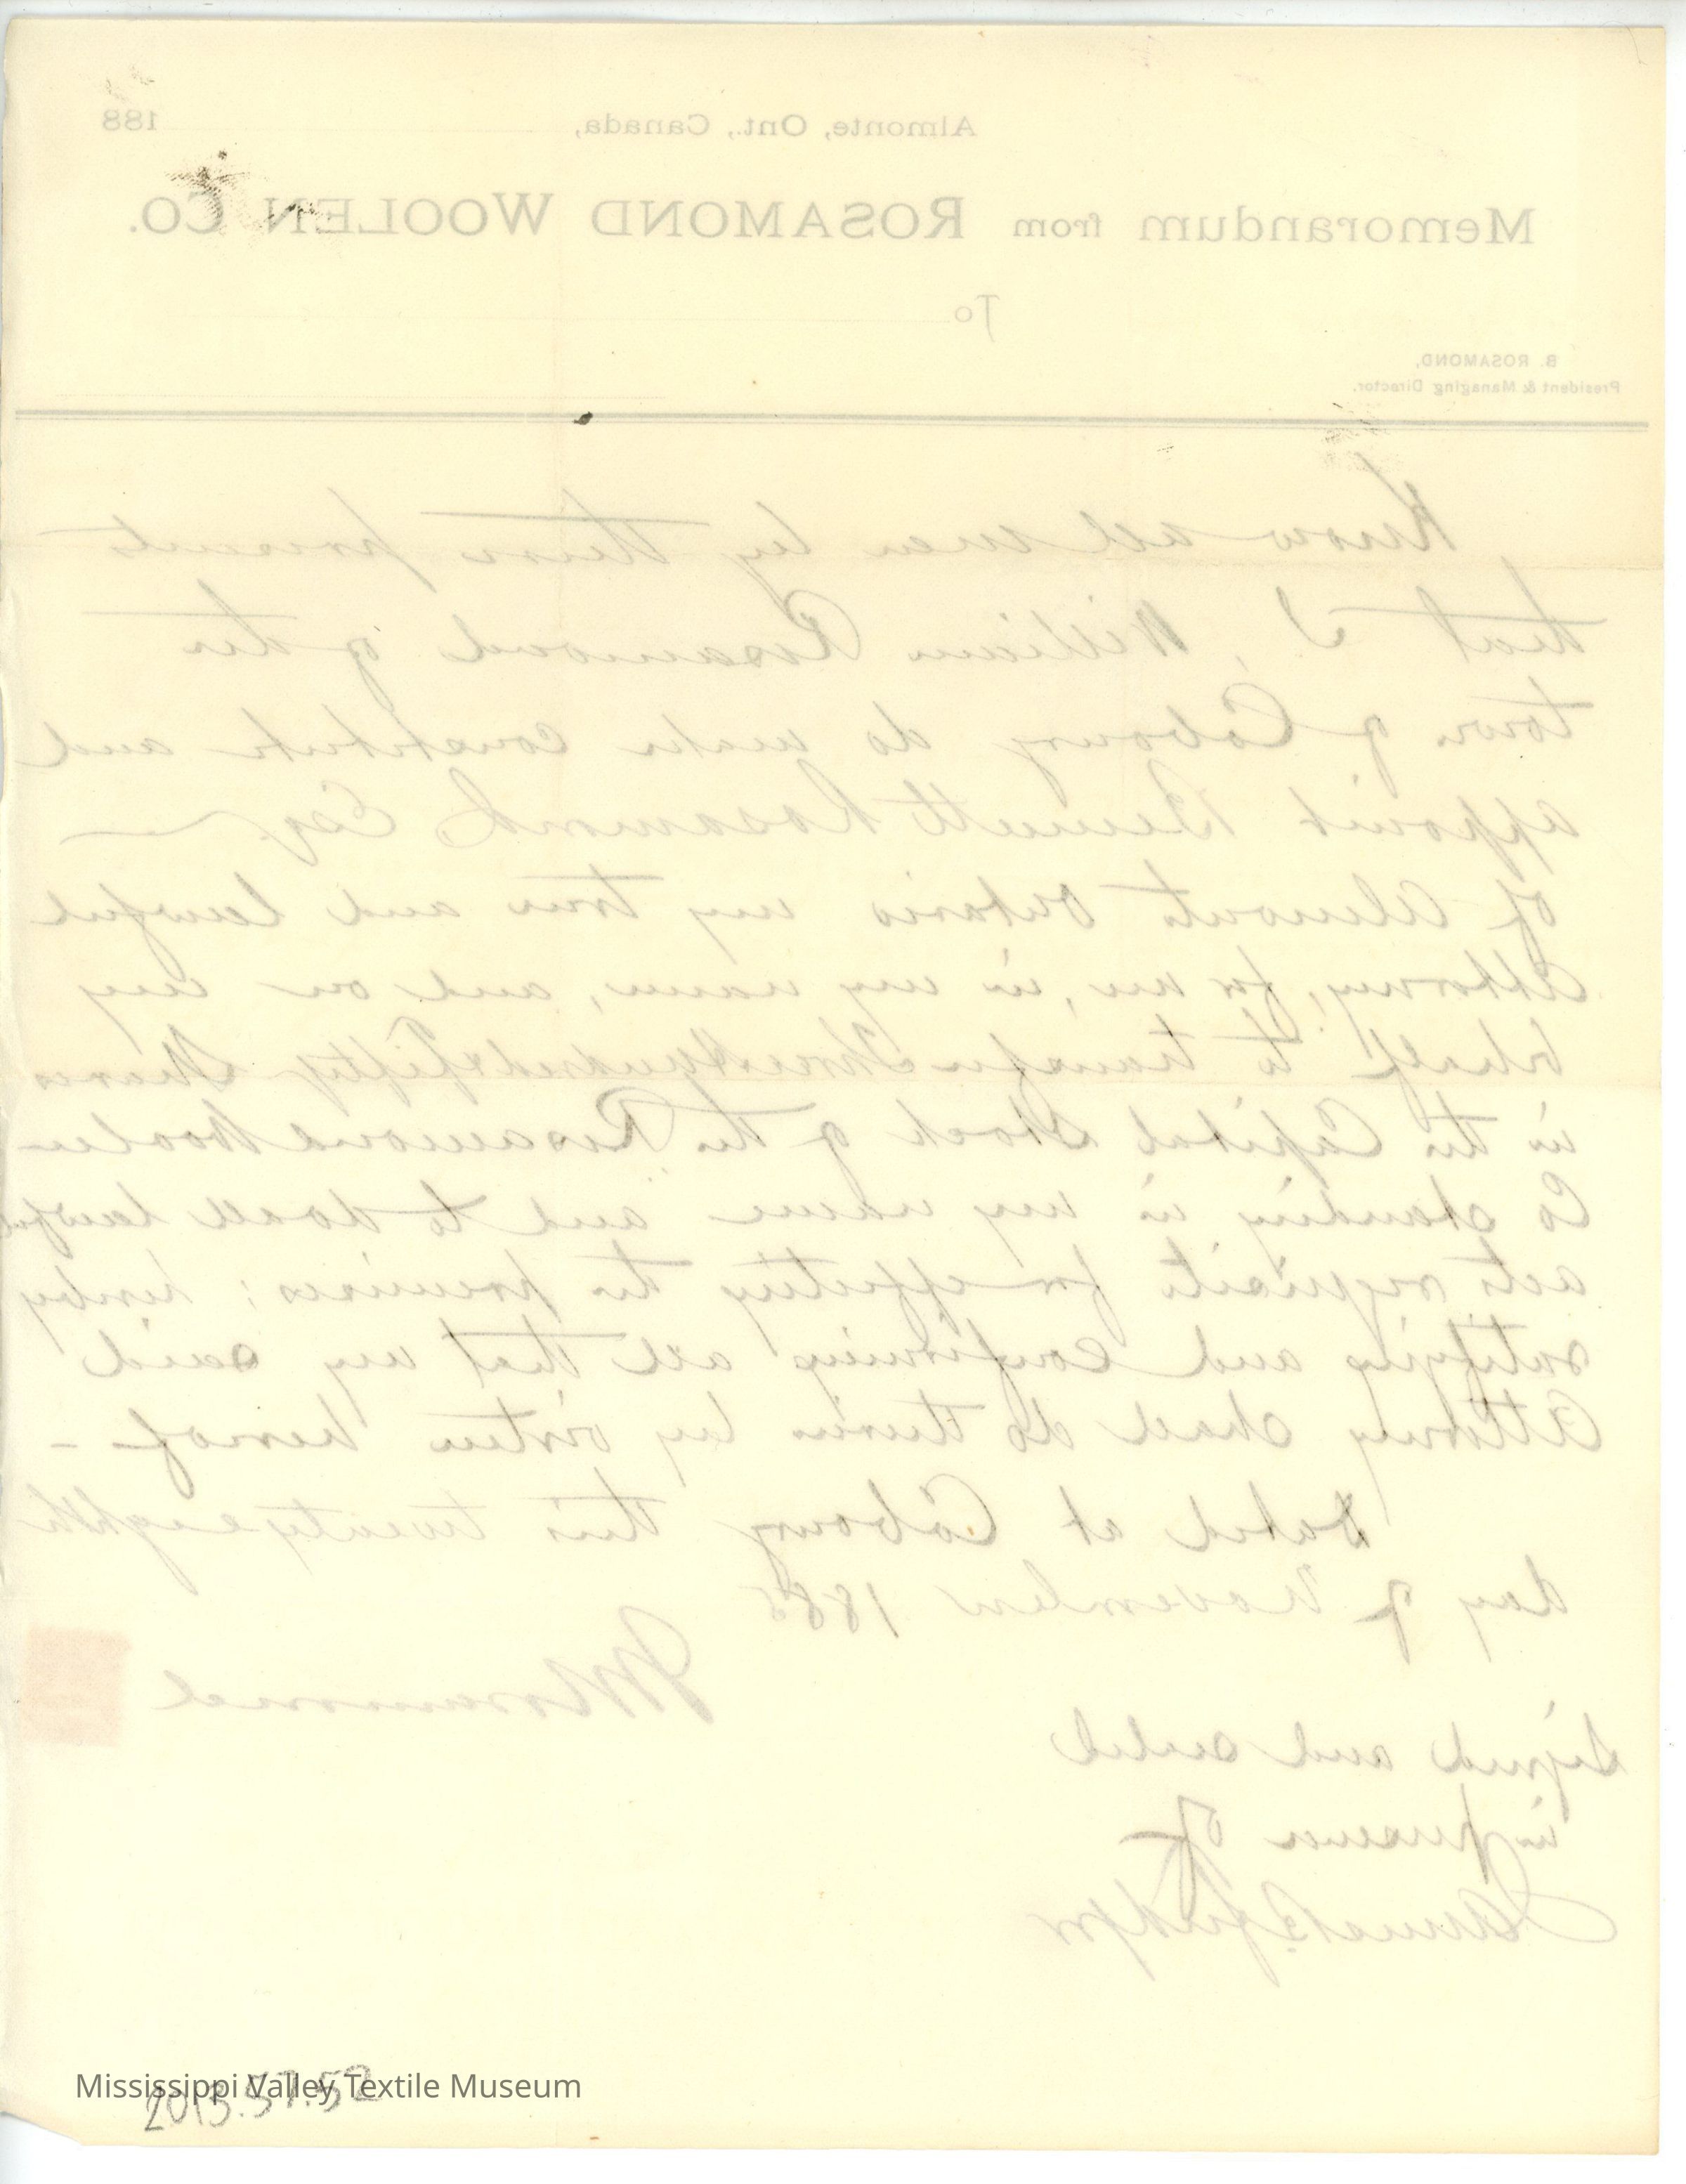 Almonte, Ont., Canada, 188
Memorandum from ROSAMOND WOOLEN CO.
To
B. ROSAMOND,
President & Managing Director.
Know all men by these presents
that I, William Rosamond of the
town of Cobourg do make constitute and
appoint Bennett Rosamond, Esq.
of Almonte Ontario my true and lawful
Attorney, for me, in my name, and on my
behalf to transfer Three Hundred & Fifty Shares
in the Capital Stock of the Rosamond Woolen
Co standing in my name and to do all lawful
acts requisite for effecting the premises; hereby
ratifying and confirming all that my said
Attorney shall do therein by virtue hereof -
Dated at Cobourg this twenty eighth
day of November 188
WRosamond
Signed and sealed
in presence of
2013.57.52
Mississippi Valley Textile Museum